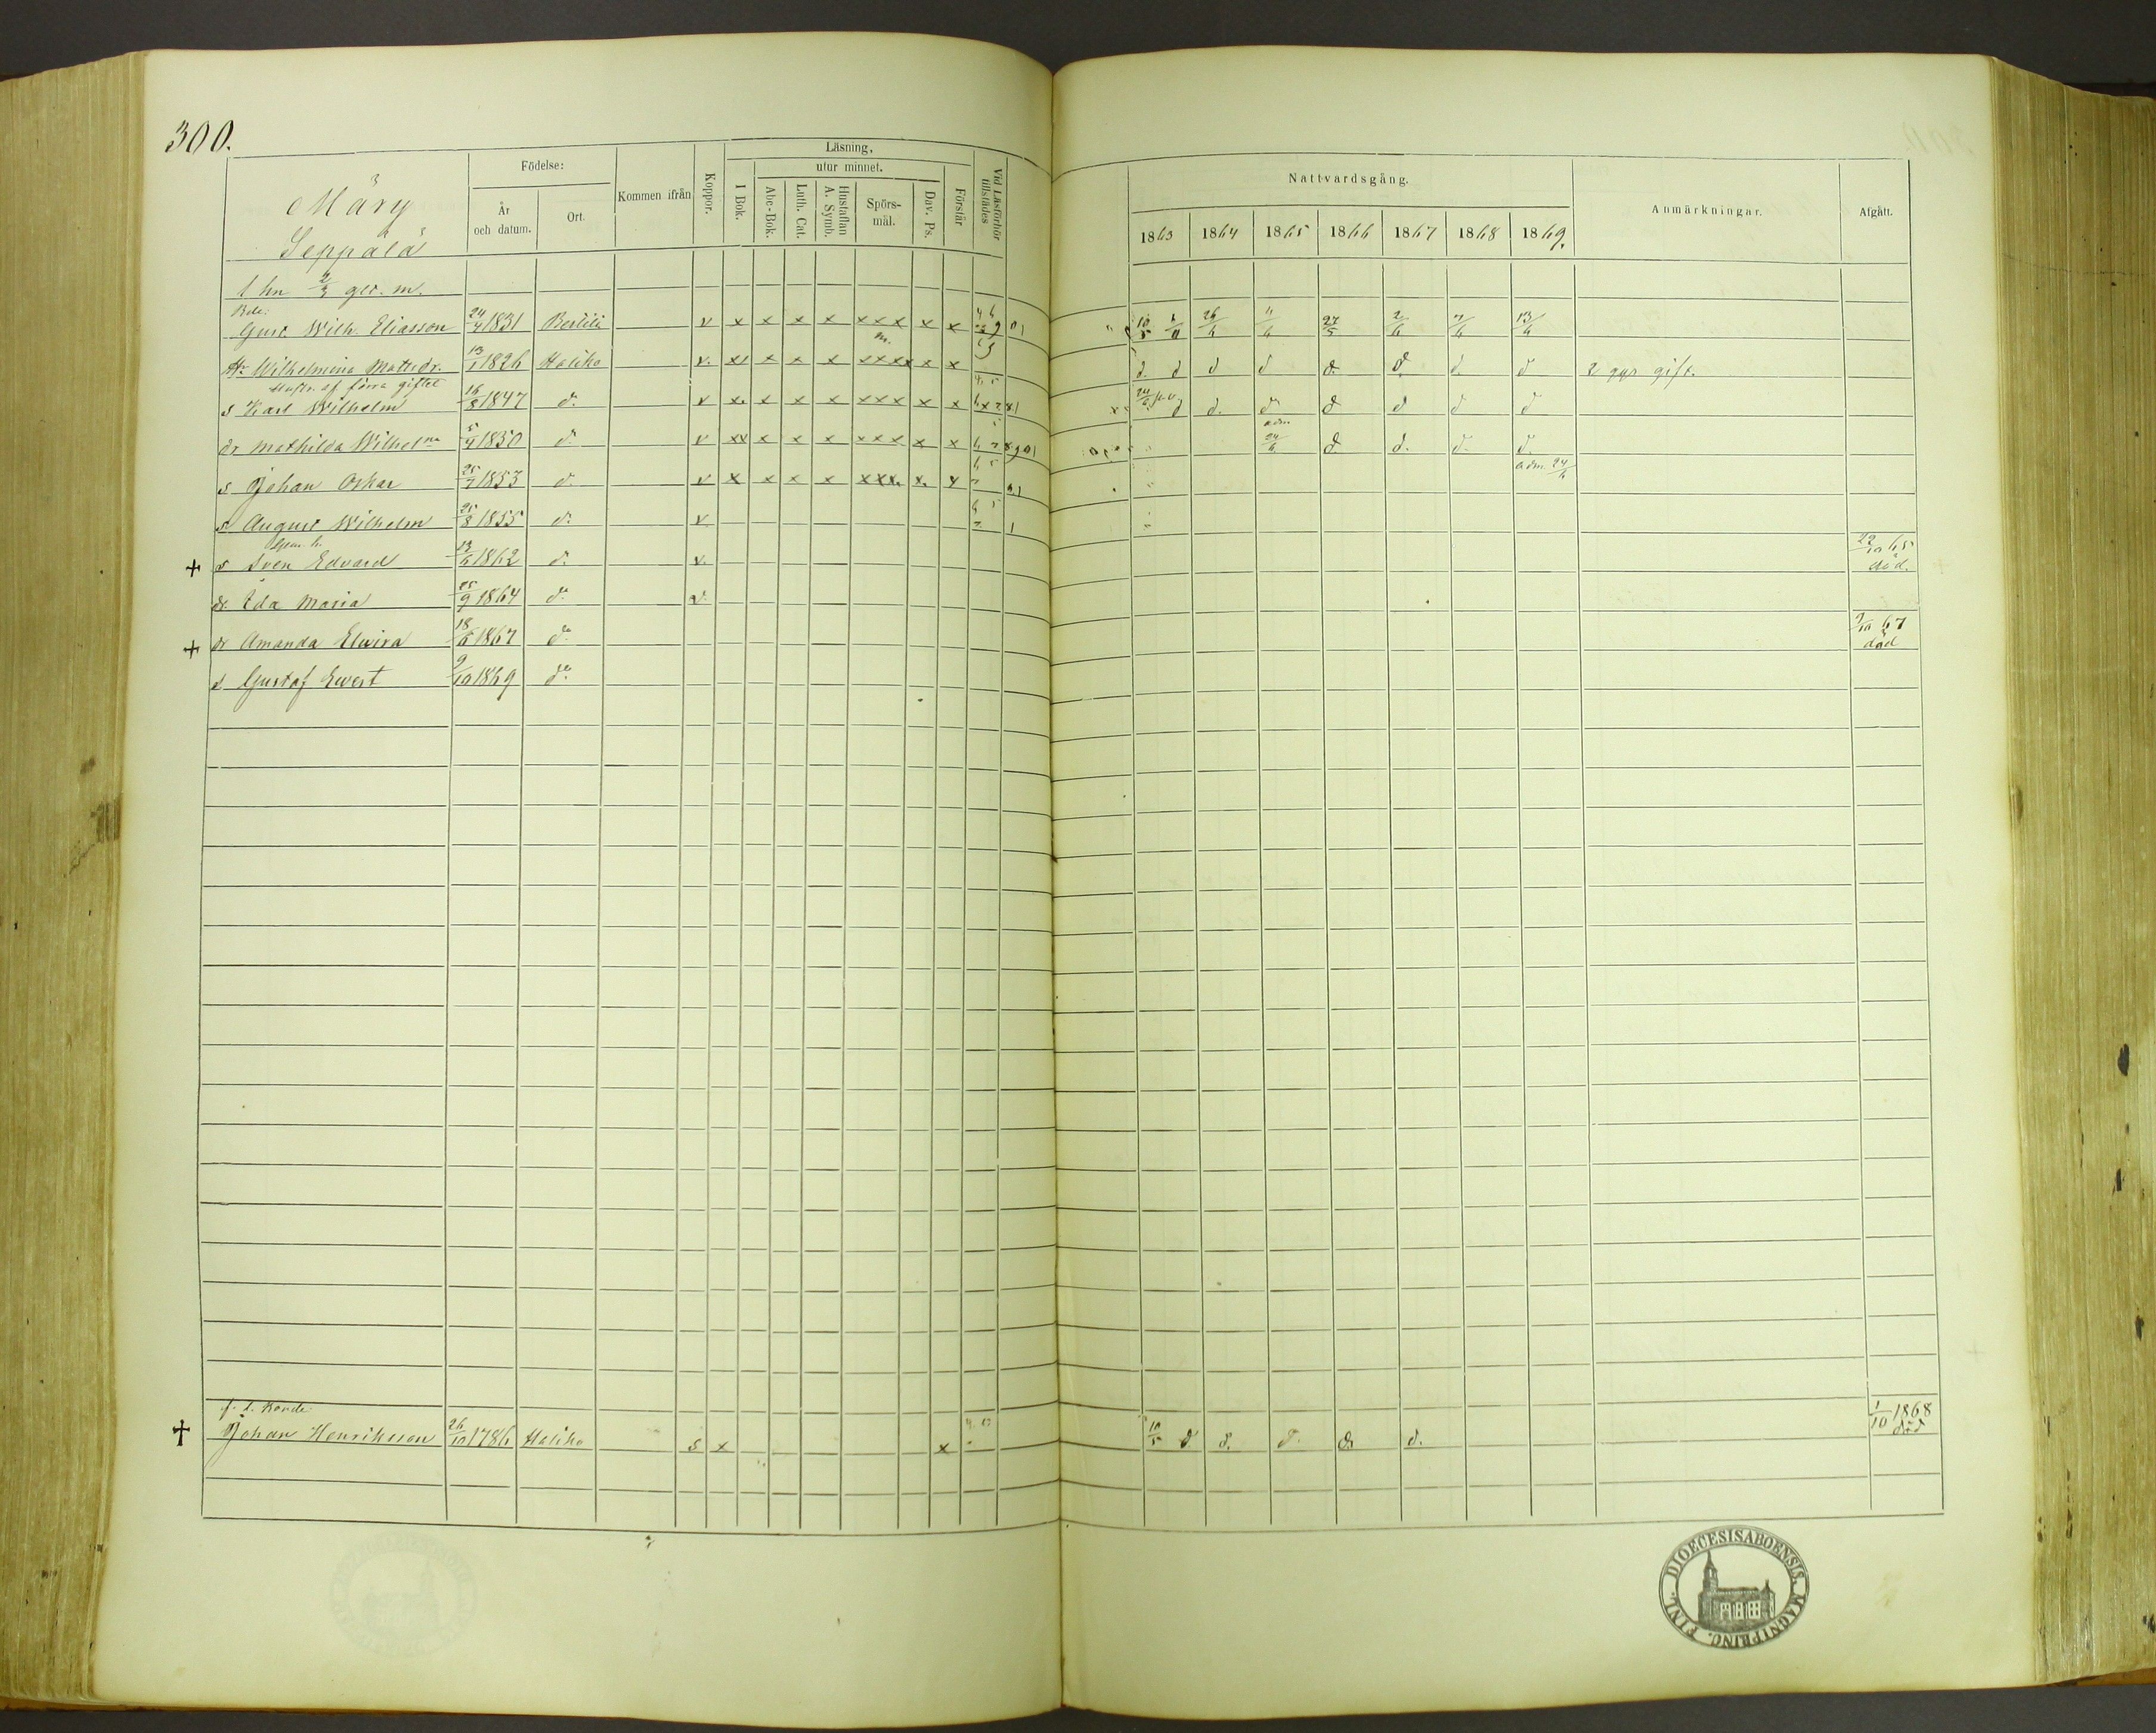 300.
Märy
Seppälä
Födelse:
År och datum.
Ort.
Kommen ifrån
Koppor.
Läsning,
utur minnet.
I Bok.
Abc-Bok.
Luth. Cat.
Hustaflan A. Symb.
Spörsmål.
Dav. Ps.
Förstår
Vid Läsförhör tillstädes
Nattvardsgång.
1863 1864 1865 1866 1867 1868 1869.
Anmärkningar.
Afgått.
1 hn 2/3 ger. m.
Bde:
Gust. Wilh. Eliasson 24/4 1831 Bertila v x x x x xxx x x 10/5 26/6 11/6 27/5 2/6 7/6 13/6
m.
Hu Wilhelmina Mattsdr. 13/1 1826 Haliko v. xx x x x xxxx x x d. d d d d. d. d. d 2 ggr gift.
Hustr. af förra giftet
s Karl Wilhelm 16/8 1847 do v x. x x x xxx x x d d. d. d d d d
adm
dr Mathilda Wilhelma 5/4 1850 do v xx x x x xxx x x 24/6 d. d. d. d.
s Johan Oskar 25/7 1853 do v x x x x xxx. x. x adm. 24/6
s August Wilhelm 25/8 1855 do v
+ s Sven Edvard 13/6 1862 do v. 22/10 65 död.
dr. Ida Maria 25/9 1864 do v.
+ dr Amanda Elvira 18/6 1867 do 9/10 67 död
s Gustaf Evert 9/10 1869 do
f. d. Bonde
† Johan Henriksson 26/10 1786 Haliko s x x 10/5 d d. d. d. d. 1/10 1868 död
DIOECESIS ABOENSIS. MAGNI PRINC. FINL.